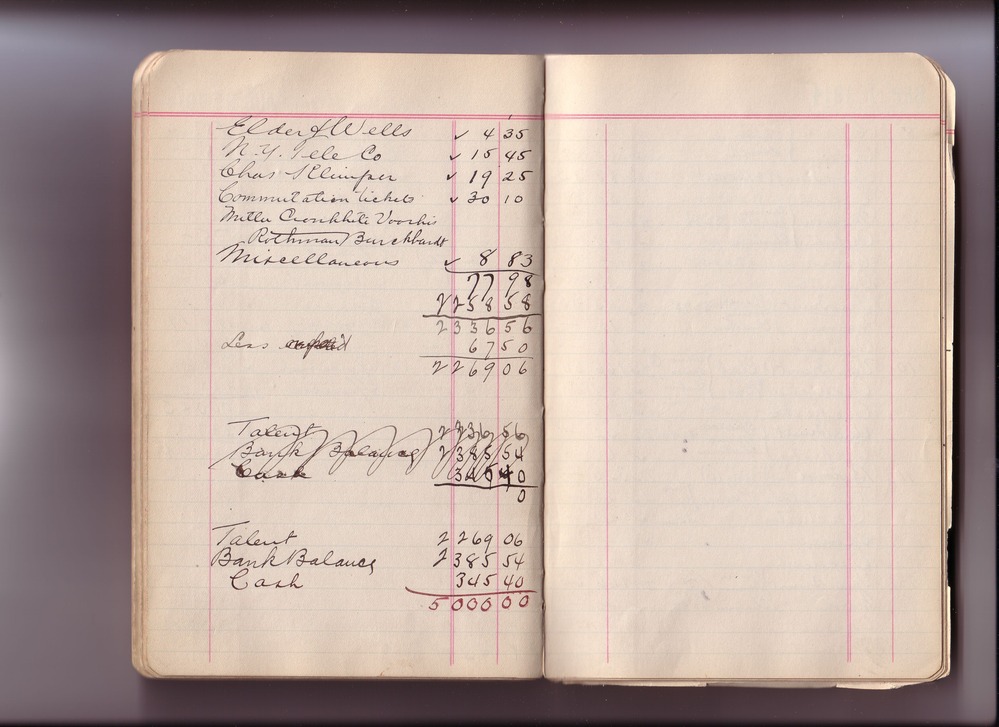 Elder & Wells ✓ 4 35
N.Y. Tele Co ✓ 15 45
Chas Klumper ✓ 19 25
Commutation tickets ✓ 30 10
Cronkhite Voorhis
Rothman Burckhardt
Miscellaneous ✓ 8 83
77 98
2258 58
2336 56
Less 67 50
2269 06
Talent 2336 56
Bank Balance 2385 54
Cash 345 40
0
Talent 2269 06
Bank Balance 2385 54
Cash 345 40
5000 00